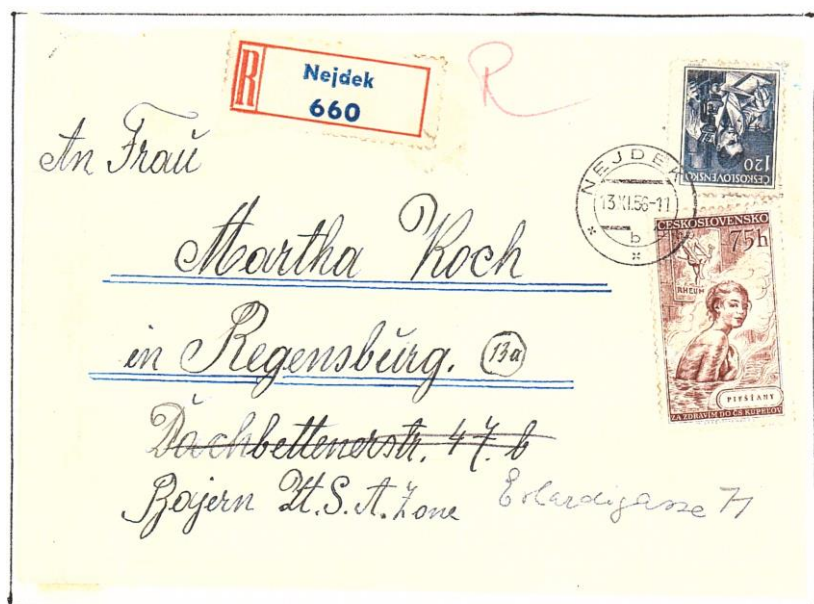 R
Nejdek
660
R
120
ČESKOSLOVENSKO
NEJDEK
13.XI.56-11
b
ČESKOSLOVENSKO
75h
RHEUMA
PIEŠŤANY
ZA ZDRAVÍM DO ČS KÚPEĽOV
An Frau
Martha Koch
in Regensburg. 13a
Dachbettenerstr. 47. b
Bajern U.S.A. Zone